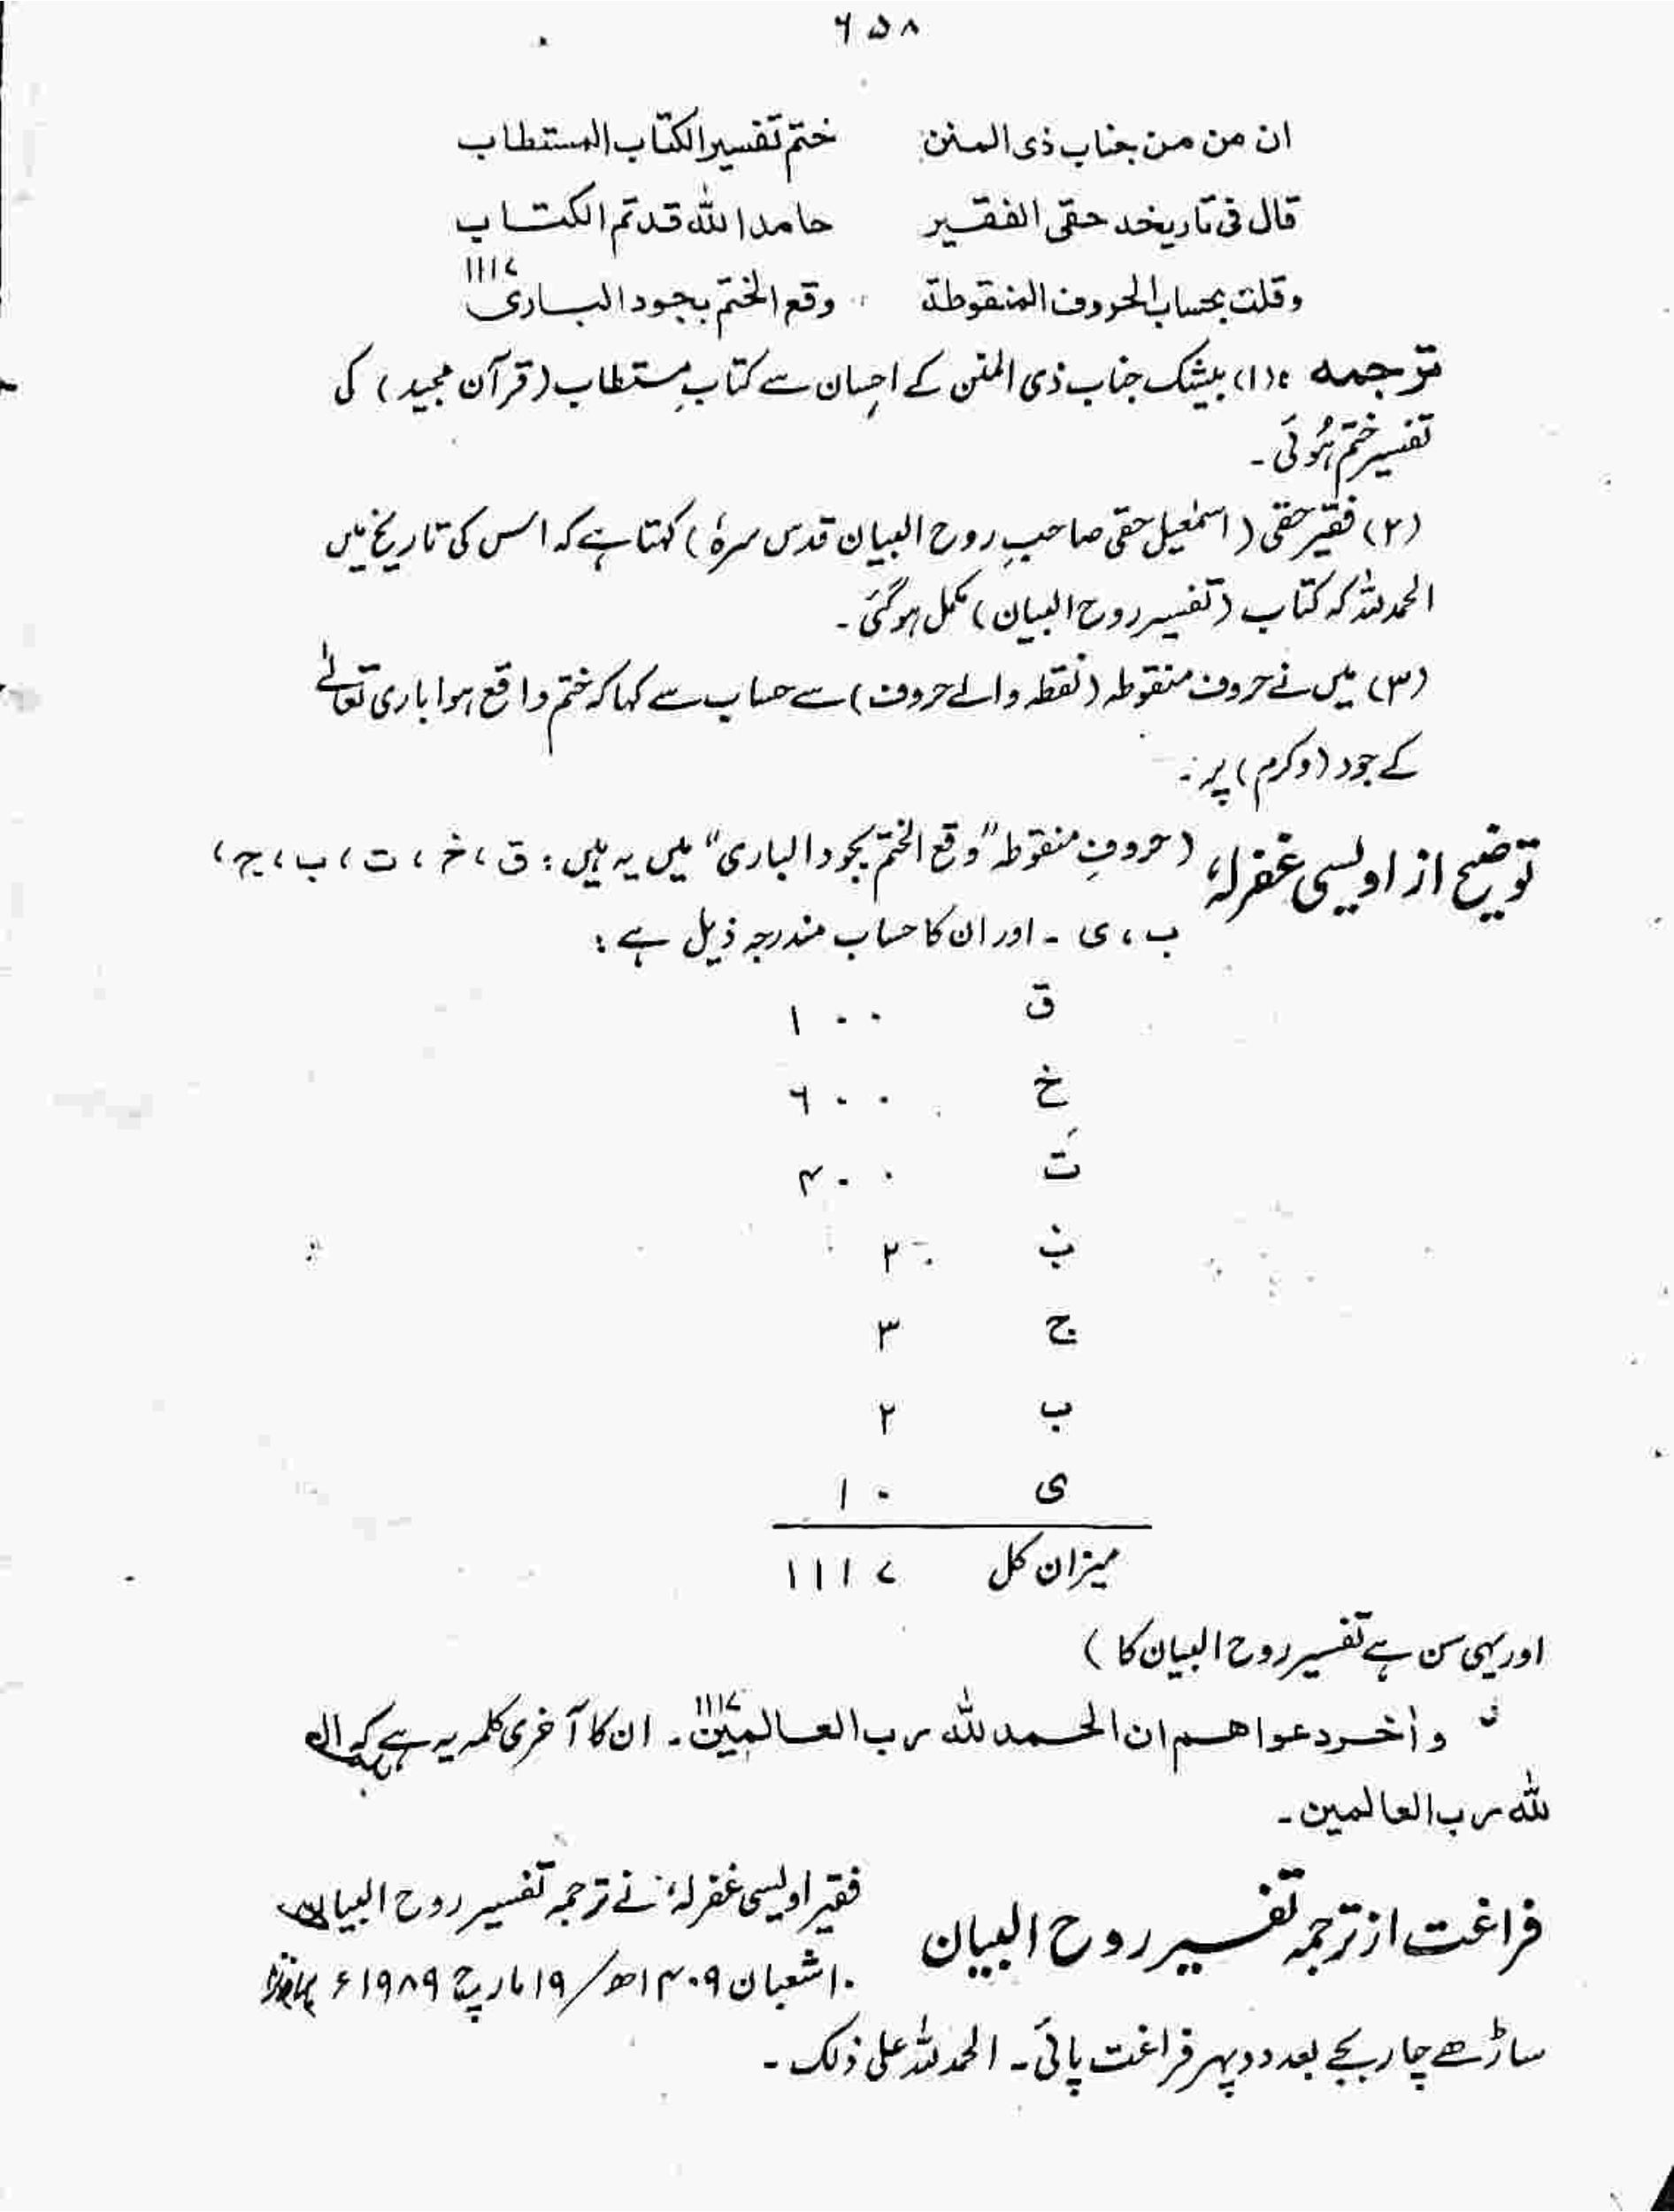 ۶۵۸
ان من من جناب ذی المنن ختم تفسیر الکتاب المستطاب
قال فی تاریخہ حقی الفقیر حامدا للہ قد تم الکتاب
۱۱۱۷
وقلت بحساب الحروف المنقوطۃ وقع الختم بجود الباری
ترجمہ : (۱) بیشک جناب ذی المنن کے احسان سے کتابِ مستطاب (قرآن مجید) کی
تفسیر ختم ہُوئی ۔
(۲) فقیر حقی (اسمٰعیل حقی صاحبِ روح البیان قدس سرہٗ) کہتا ہے کہ اس کی تاریخ میں
الحمد للہ کہ کتاب (تفسیر روح البیان) مکمل ہوگئی ۔
(۳) میں نے حروف منقوطہ (نقطہ والے حروف) سے حساب سے کہا کہ ختم واقع ہوا باری تعالٰے
کے جود (وکرم) پر ۔
توضیح از اویسی غفرلہٗ (حروفِ منقوطہ "وقع الختم بجود الباری" میں یہ ہیں : ق ، خ ، ت ، ب ، ج ،
ب ، ی ۔ اور ان کا حساب مندرجہ ذیل ہے :
ق ۱۰۰
خ ۶۰۰
ت ۴۰۰
ب ۲
ج ۳
ب ۲
ی ۱۰
میزان کل ۱۱۱۷
اور یہی سن ہے تفسیر روح البیان کا )
۱۱۱۷
وأخر دعواهم ان الحمد للہ رب العالمین ۔ ان کا آخری کلمہ یہ ہے کہ
للہ رب العالمین ۔
فراغت از ترجمہ تفسیر روح البیان فقیر اویسی غفرلہٗ نے ترجمہ تفسیر روح البیان
۱۰ شعبان ۱۴۰۹ھ / ۱۹ مارچ ۱۹۸۹ء
ساڑھے چار بجے بعد دوپہر فراغت پائی ۔ الحمد للہ علی ذلک ۔